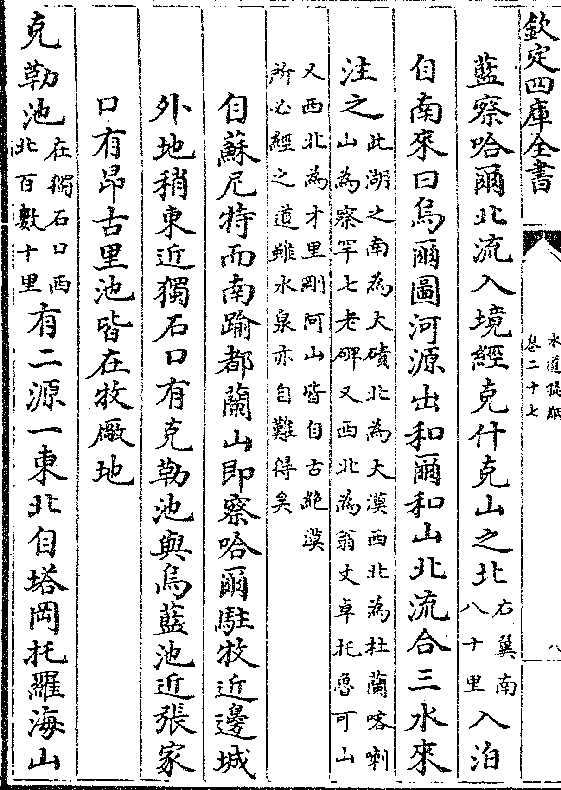 欽定四庫全書
水道提綱
卷二十七
八
藍察哈爾北流入境經克什克山之北右翼南八十里入泊
自南來曰烏爾圖河源出和爾和山北流合三水來
注之此湖之南為大磧北為大漠西北為杜蘭喀喇山為察罕七老碑又西北為翁丈卓托魯可山
又西北為才里剛阿山皆自古絶漠所必經之道雖水泉亦自難得矣
自蘇尼特而南踰都蘭山即察哈爾駐牧近邊城
外地稍東近獨石口有克勒池與烏藍池近張家
口有昂古里池皆在牧廠地
克勒池在獨石口西北百數十里有二源一東北自塔岡托羅海山